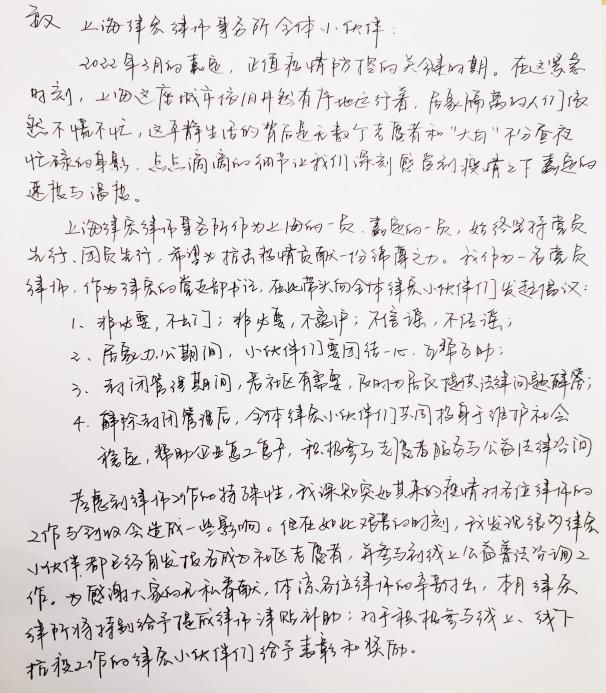 致 上海律宏律师事务所全体小伙伴:
2022年3月的嘉定,正值疫情防控的关键时期。在这紧急
时刻,上海这座城市依旧井然有序地运行着,居家隔离的人们依
然不慌不忙,这平静生活的背后是无数个志愿者和“大白”不分昼夜
忙碌的身影,点点滴滴的细节让我们深刻感受到疫情之下嘉定的
速度与温度。
上海律宏律师事务所作为上海的一员、嘉定的一员,始终坚持党员
先行、团员先行,希望为抗击疫情贡献一份绵薄之力。我作为一名党员
律师,作为律宏的党支部书记,在此带头向全体律宏小伙伴们发起倡议:
1、非必要,不出门;非必要,不离沪;不信谣,不传谣;
2、居家办公期间,小伙伴们要团结一心、互帮互助;
3、封闭管理期间,若社区有需要,及时为居民提供法律问题解答;
4、解除封闭管理后,全体律宏小伙伴们共同投身于维护社会
稳定,帮助企业复工复产,积极参与志愿者服务与公益法律咨询
考虑到律师工作的特殊性,我深知突如其来的疫情对各位律师的
工作与创收会造成一些影响。但在如此艰苦的时刻,我发现很多律宏
小伙伴都已经自发报名成为社区志愿者,并参与到线上公益普法咨询工
作。为感谢大家的无私奉献,体谅各位律师的辛勤付出,本月律宏
律所将特别给予提成律师津贴补助;对于积极参与线上、线下
抗疫工作的律宏小伙伴们给予表彰和奖励。